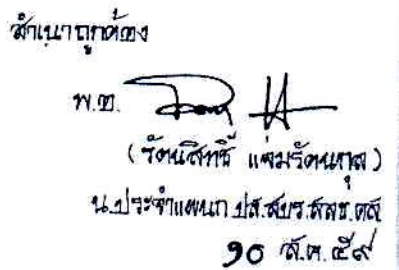 สำเนาถูกต้อง
พ.ท.
(รัตนสิทธิ์ แจ่มรัตนกุล)
น.ประจำแผนก ปส.สบร.สลช.คส
๑๐ ส.ค. ๕๙